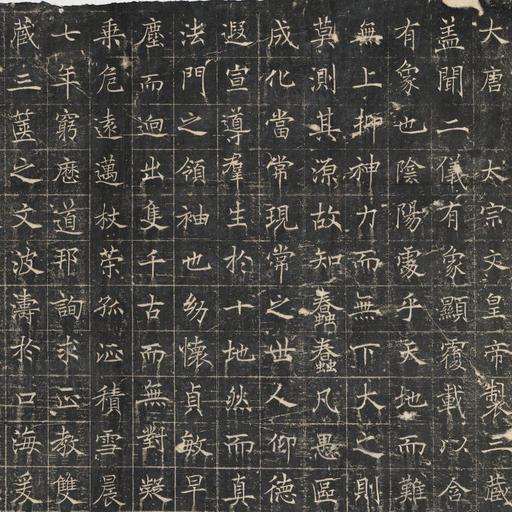 大唐　太宗文皇帝製三藏
盖聞二儀有象顯覆載以含
有象也陰陽處乎天地而難
無上抑神力而無下大之則
莫測其源故知蠢蠢凡愚區
成化當常現常之世人仰德
遐宣導羣生於十地然而真
法門之領袖也幼懷貞敏早
塵而迥出隻千古而無對凝
乗危遠邁杖策孤征積雪晨
七年窮歷道邦詢求正教雙
藏三篋之文波濤於口海爰